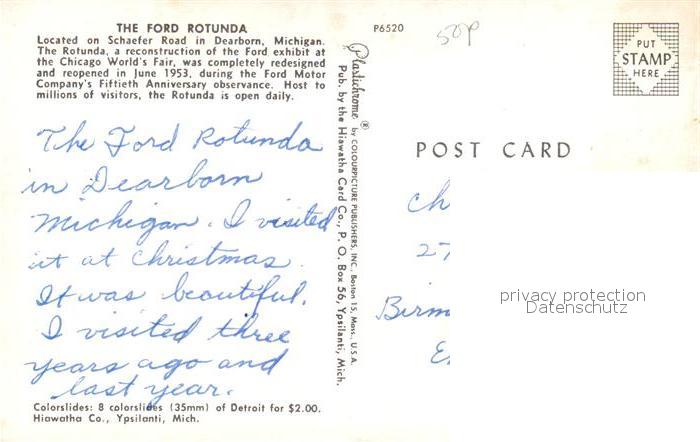 THE FORD ROTUNDA
Located on Schaefer Road in Dearborn, Michigan.
The Rotunda, a reconstruction of the Ford exhibit at
the Chicago World's Fair, was completely redesigned
and reopened in June 1953, during the Ford Motor
Company's Fiftieth Anniversary observance. Host to
millions of visitors, the Rotunda is open daily.
The Ford Rotunda
in Dearborn
Michigan. I visited
it at Christmas.
It was beautiful.
I visited three
years ago and
last year.
Colorslides: 8 colorslides (35mm) of Detroit for $2.00.
Hiawatha Co., Ypsilanti, Mich.
Plastichrome ® by COLOURPICTURE PUBLISHERS, INC., Boston 15, Mass., U.S.A.
Pub. by the Hiawatha Card Co., P. O. Box 56, Ypsilanti, Mich.
P6520
50p
PUT
STAMP
HERE
POST CARD
Ch
27
Birm
E
privacy protection
Datenschutz